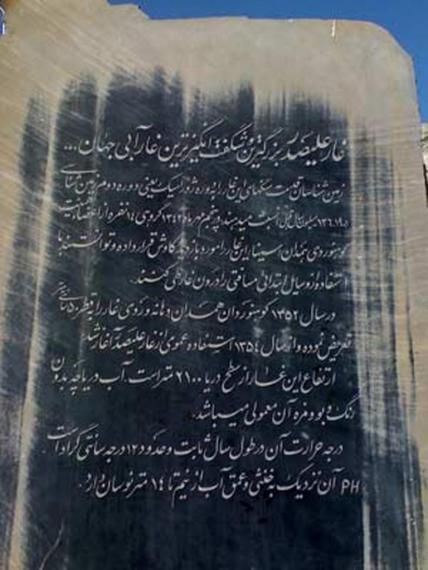 غار علیصدر بزرگترین و شگفت انگیزترین غار آبی جهان ...
زمین شناسان قدمت سنگهای این غار را به دوره ژوراسیک یعنی دوره دوم زمین شناسی
۱۹۰-۱۳۶ میلیون سال قبل نسبت میدهند، در پنجم مرداد ۱۳۴۲ گروهی ۱۴ نفره از اعضاء هیئت
کوهنوردی همدان این غار را مورد بازدید و کاوش قرار داده و توانستند با
استفاده از وسایل ابتدائی مسافتی را درون غار طی کنند.
در سال ۱۳۵۲ کوهنوردان همدان دهانه ورودی غار را به قطر ۵۰ سانتی متر
تعریض نموده و از سال ۱۳۵۴ استفاده عمومی از غار علیصدر آغاز شد
ارتفاع این غار از سطح دریا ۲۱۰۰ متر است. آب دریاچه بدون
رنگ و بو و مزه آن معمولی میباشد.
درجه حرارت آن در طول سال ثابت و حدود ۱۲ درجه سانتی گراد است
PH آن نزدیک به خنثی و عمق آب از نیم تا ۱۴ متر نوسان دارد.